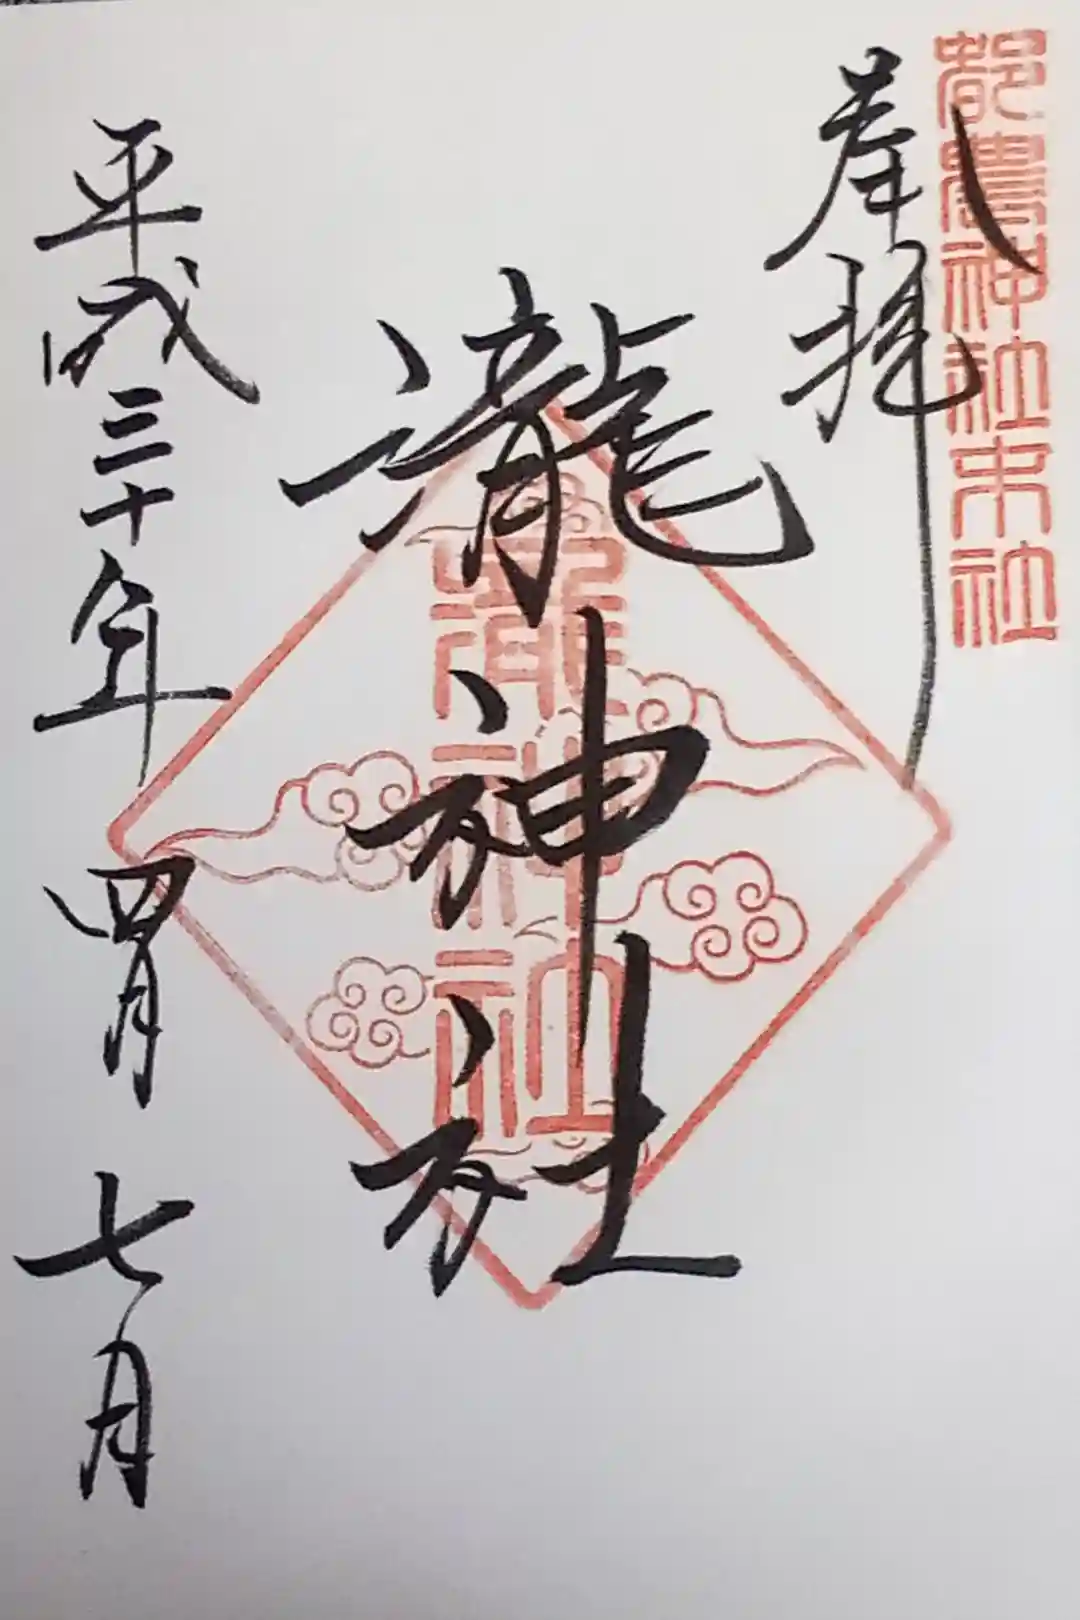 都農神社末社
奉拝
瀧神社
瀧神社
平成三十年四月七日